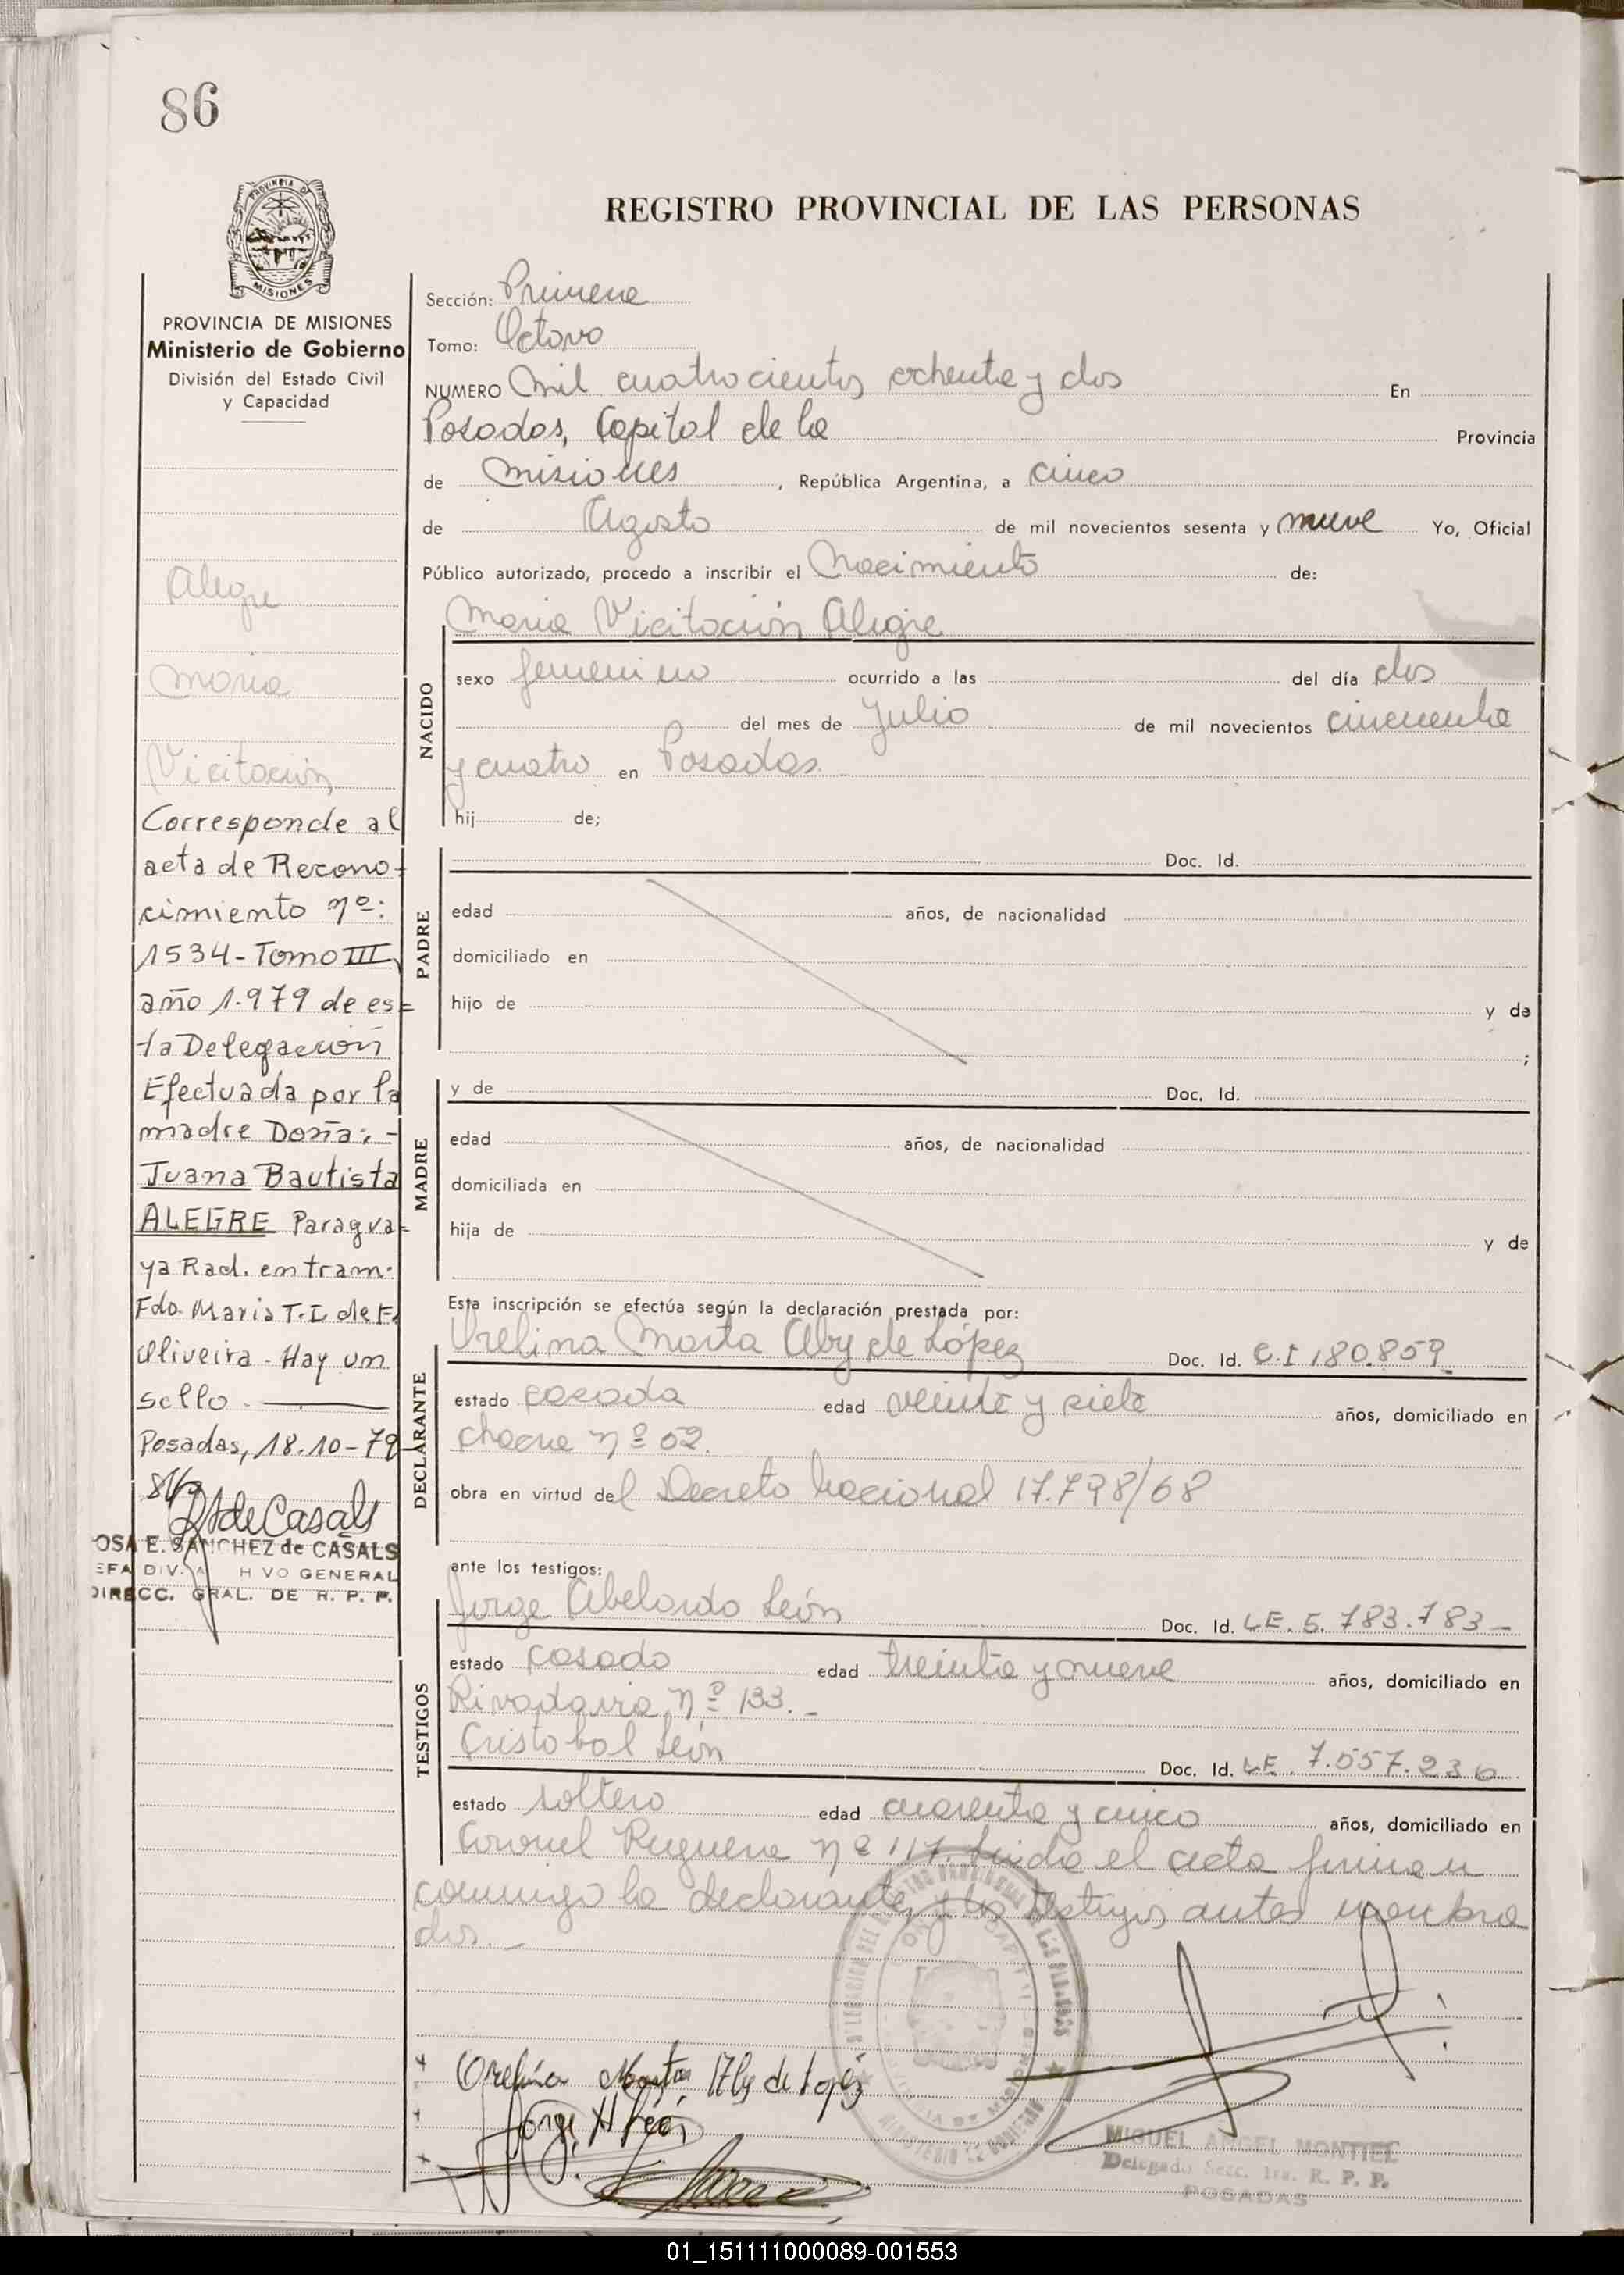 86
PROVINCIA DE
MISIONES
PROVINCIA DE MISIONES
Ministerio de Gobierno
División del Estado Civil
y Capacidad
Alegre
Maria
Vicitación
Corresponde al
acta de Recono-
cimiento nº:
1534-Tomo III
año 1.979 de es=
ta Delegación
Efectuada por la
madre Doña:-
Juana Bautista
ALEGRE Paragua=
ya Rad. en tram.
Fdo. Maria T.I. de F.
Oliveira - Hay un
sello.
Posadas, 18.10-79
de Casals
OSA E. SANCHEZ de CASALS
EFA DIV. A H VO GENERAL
DIRECC. GRAL. DE R. P. P.
REGISTRO PROVINCIAL DE LAS PERSONAS
Sección: Primera
Tomo: Octavo
NUMERO Mil cuatrocientos ochenta y dos En
Posadas, Capital de la Provincia
de Misiones, República Argentina, a cinco
de Agosto de mil novecientos sesenta y nueve Yo, Oficial
Público autorizado, procedo a inscribir el Nacimiento de:
Maria Vicitación Alegre
NACIDO
sexo femenino ocurrido a las del día dos
del mes de Julio de mil novecientos cincuenta
y cuatro en Posadas.
hij de;
PADRE
Doc. Id.
edad años, de nacionalidad
domiciliado en
hijo de y de
;
MADRE
y de Doc. Id.
edad años, de nacionalidad
domiciliada en
hija de y de
Esta inscripción se efectúa según la declaración prestada por:
DECLARANTE
Orelina Marta Aby de López Doc. Id. C.I 180.859
estado casada edad veinte y siete años, domiciliado en
chacra nº 52.
obra en virtud del Decreto Nacional 17.798/68
ante los testigos:
TESTIGOS
Jorge Abelardo León Doc. Id. LE. 5.783.783-
estado casado edad treinta y nueve años, domiciliado en
Rivadavia nº 133.-
Cristobal León Doc. Id. LE. 7.557.236
estado soltero edad cuarenta y cinco años, domiciliado en
Coronel Reguera nº 117. Leida el acta firman
conmigo la declarante y los testigos antes nombra
dos.-
Orelina Marta Aby de López
Jorge A León
MIGUEL ANGEL MONTIEL
Delegado Secc. 1ra. R. P. P.
POSADAS
01_151111000089-001553